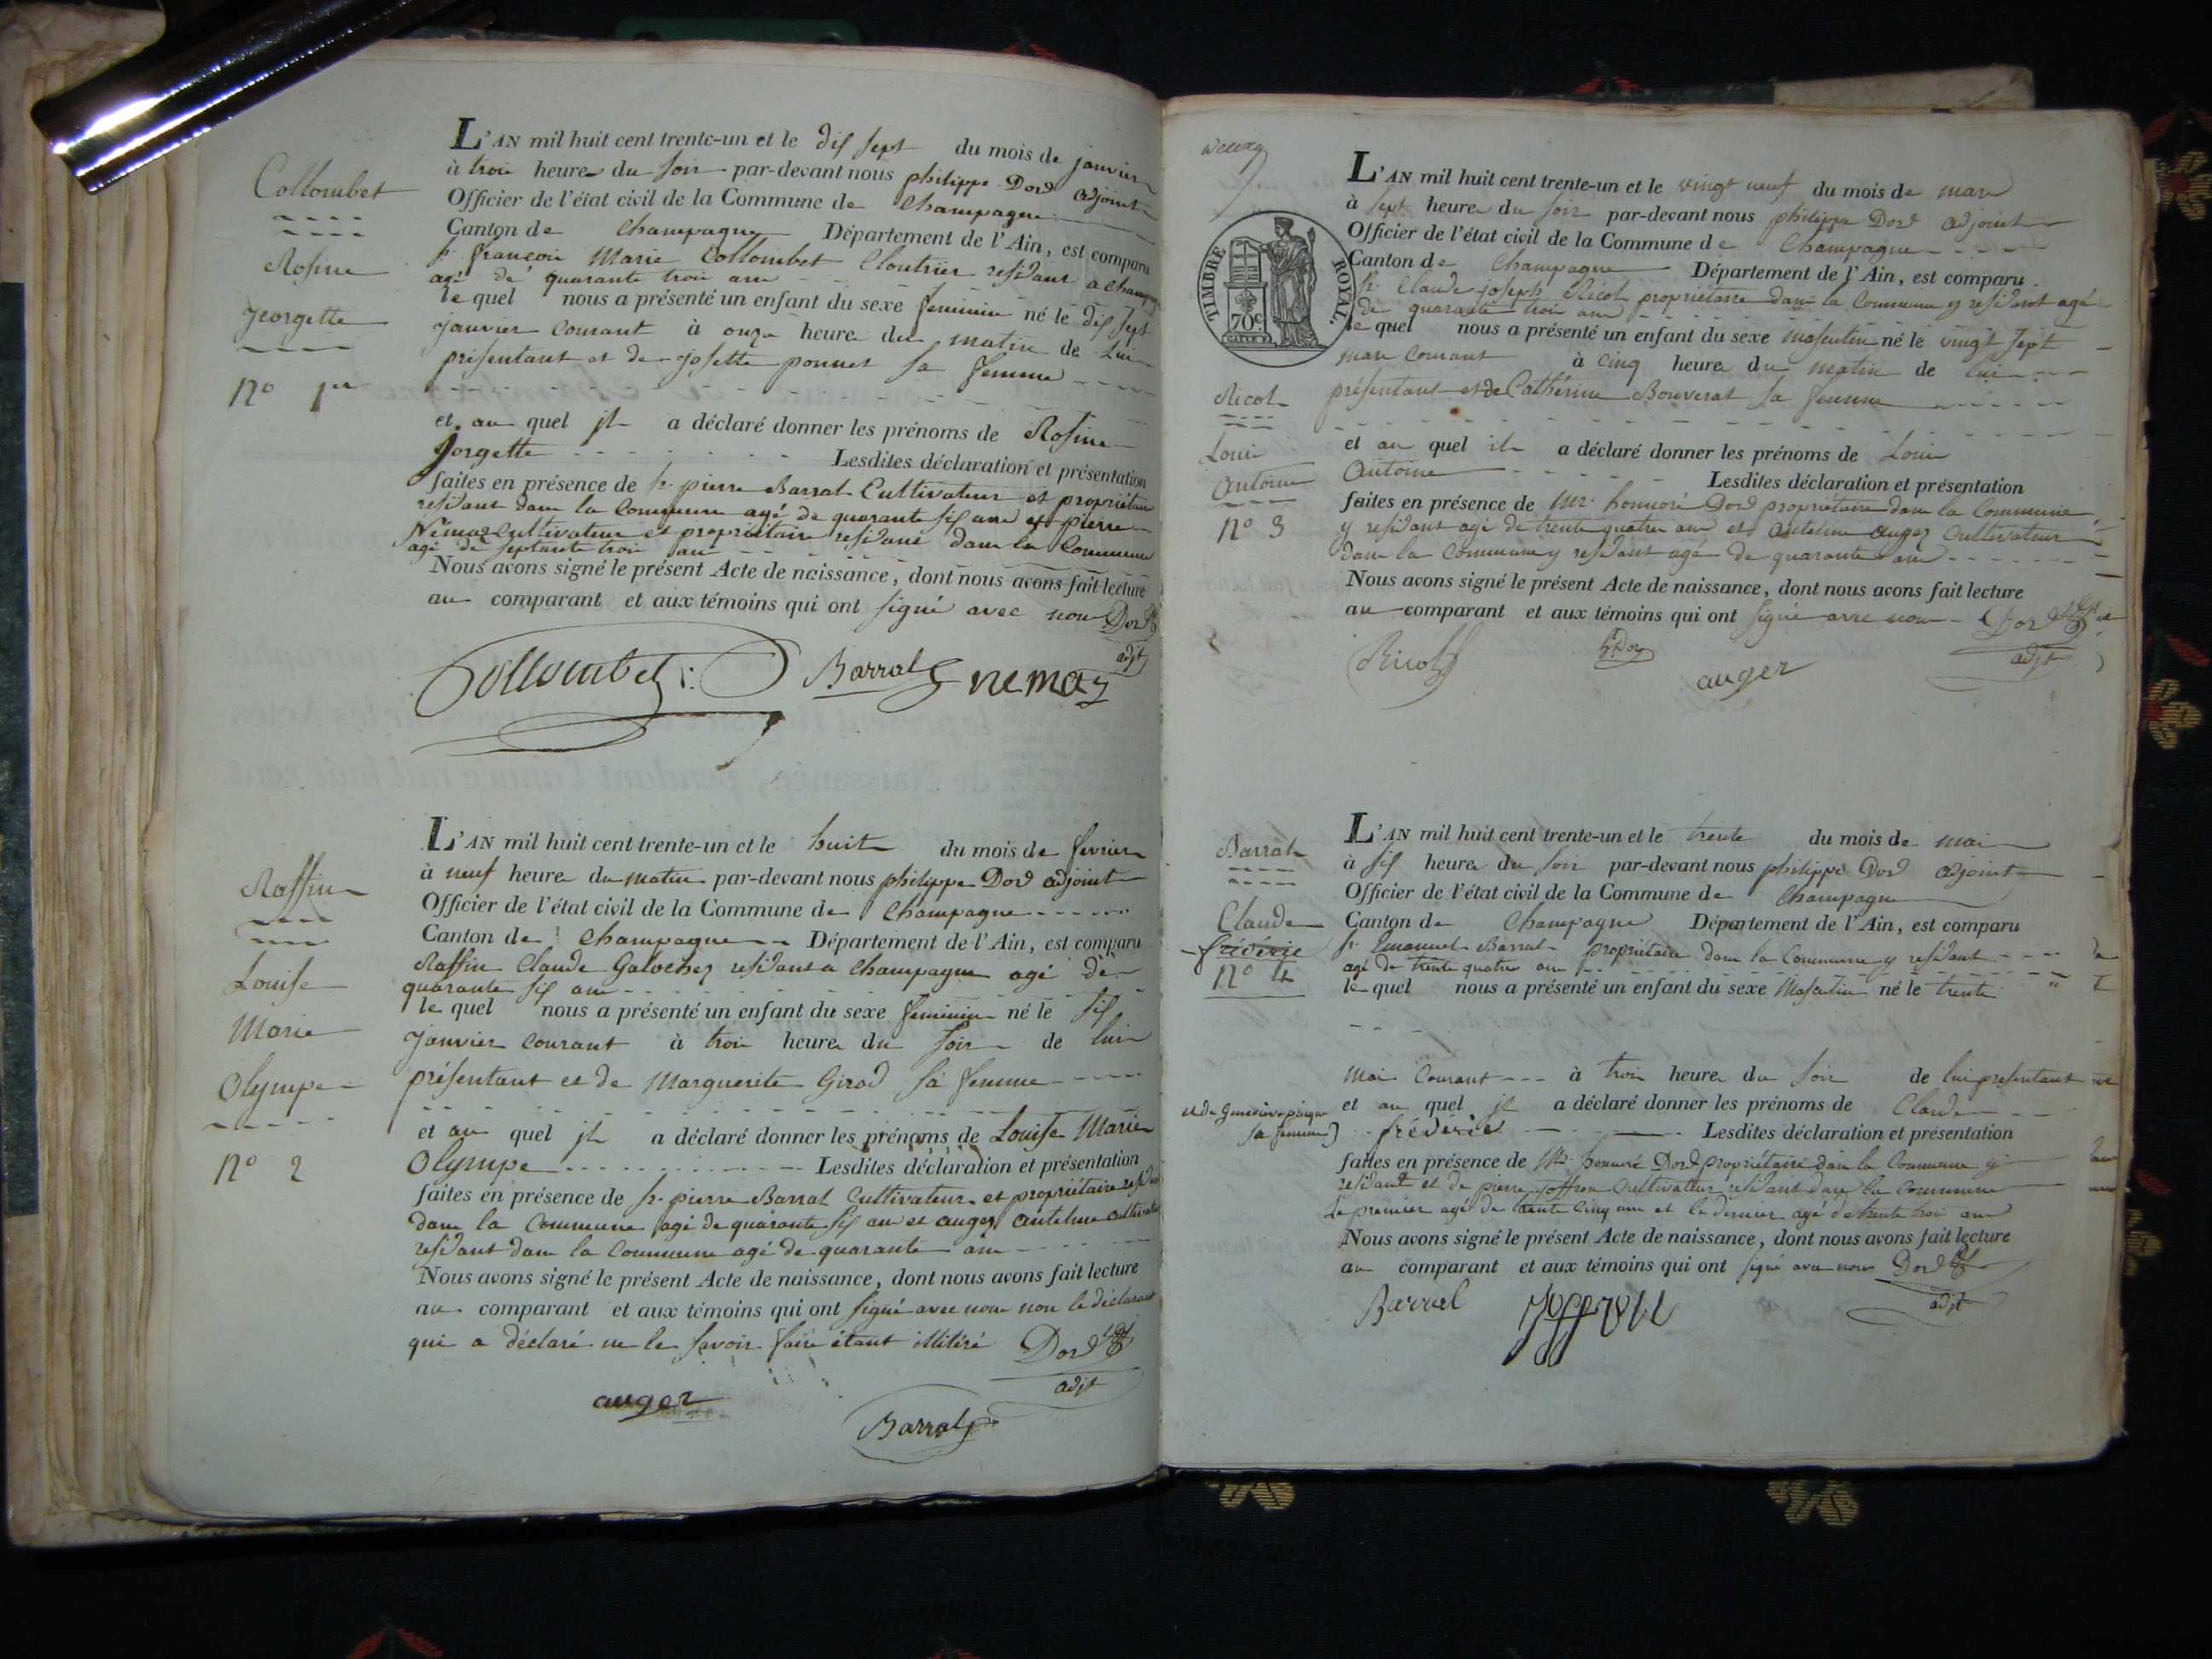 Collombet
Rosine
Jeorgette
No 1er
L'AN mil huit cent trente-un et le dix sept du mois de janvier
à trois heures du soir par-devant nous philippe Dord adjoint
Officier de l'état civil de la Commune de Champagne
Canton de Champagne Département de l'Ain, est comparu
sr. françois Marie Collombet Cloutrier residant a champagne
agé de quarante trois ans
le quel nous a présenté un enfant du sexe feminin né le dix sept
janvier Courant à onze heure du matin de Lui
présentant et de josette ponnet sa femme
et au quel jl a déclaré donner les prénoms de Rosine
Jorgette Lesdites déclaration et présentation
faites en présence de sr. pierre Barral Cultivateur et propriétaire
residant dans la Commune agé de quarante six ans et pierre
Némoz Cultivateur et propriétaire residant dans la Commune
agé de septante trois ans
Nous avons signé le présent Acte de naissance, dont nous avons fait lecture
au comparant et aux témoins qui ont signé avec nous Dord
adjt
Collombet Barral nemoz
Raffin
Louise
Marie
Olympe
No 2
L'AN mil huit cent trente-un et le huit du mois de fevrier
à neuf heures du matin par-devant nous philippe Dord adjoint
Officier de l'état civil de la Commune de Champagne
Canton de Champagne Département de l'Ain, est comparu
Raffin Claude Galochez residant a Champagne agé de
quarante six ans
le quel nous a présenté un enfant du sexe feminin né le six
janvier Courant à trois heures du soir de lui
présentant et de Marguerite Girod sa femme
et au quel jl a déclaré donner les prénoms de Louise Marie
Olympe Lesdites déclaration et présentation
faites en présence de sr. pierre Barral Cultivateur et propriétaire
dans la Commune agé de quarante six ans et auger antelme Cultivateur
residant dans la Commune agé de quarante ans
Nous avons signé le présent Acte de naissance, dont nous avons fait lecture
au comparant et aux témoins qui ont signé avec nous non le déclarant
qui a déclaré ne le savoir faire étant illitéré Dord
adjt
auger
Barral
TIMBRE ROYAL.
70c
Ricol
Louis
Antoine
No 3
L'AN mil huit cent trente-un et le vingt neuf du mois de mars
à sept heures du soir par-devant nous philippe Dord adjoint
Officier de l'état civil de la Commune de Champagne
Canton de Champagne Département de l'Ain, est comparu
sr. Claude joseph Ricol propriétaire dans la Commune y residant agé
de quarante trois ans
le quel nous a présenté un enfant du sexe masculin né le vingt sept
mars Courant à cinq heures du matin de lui
présentant et de Cathérine Bouverat sa femme
et au quel il a déclaré donner les prénoms de Louis
Antoine Lesdites déclaration et présentation
faites en présence de Mr. honnoré Dord propriétaire dans la Commune
y residant agé de trente quatre ans et antelme auger Cultivateur
dans la Commune y residant agé de quarante ans
Nous avons signé le présent Acte de naissance, dont nous avons fait lecture
au comparant et aux témoins qui ont signé avec nous Dord
adjt
Ricol
auger
Barral
Claude
fréderic
No 4
L'AN mil huit cent trente-un et le trente du mois de mai
à six heures du soir par-devant nous philippe Dord adjoint
Officier de l'état civil de la Commune de Champagne
Canton de Champagne Département de l'Ain, est comparu
sr. Emanuel Barral propriétaire dans la Commune y residant
agé de trente quatre ans
le quel nous a présenté un enfant du sexe Masculin né le trente
mai Courant à trois heures du soir de lui présentant
sa femme
et au quel jl a déclaré donner les prénoms de Claude
fréderic Lesdites déclaration et présentation
faites en présence de Mr. honnoré Dord propriétaire dans la Commune y
residant et de pierre joffron Cultivateur residant dans la Commune
Le premier agé de trente cinq ans et le dernier agé de trente trois ans
Nous avons signé le présent Acte de naissance, dont nous avons fait lecture
au comparant et aux témoins qui ont signé avec nous Dord
adjt
Barral